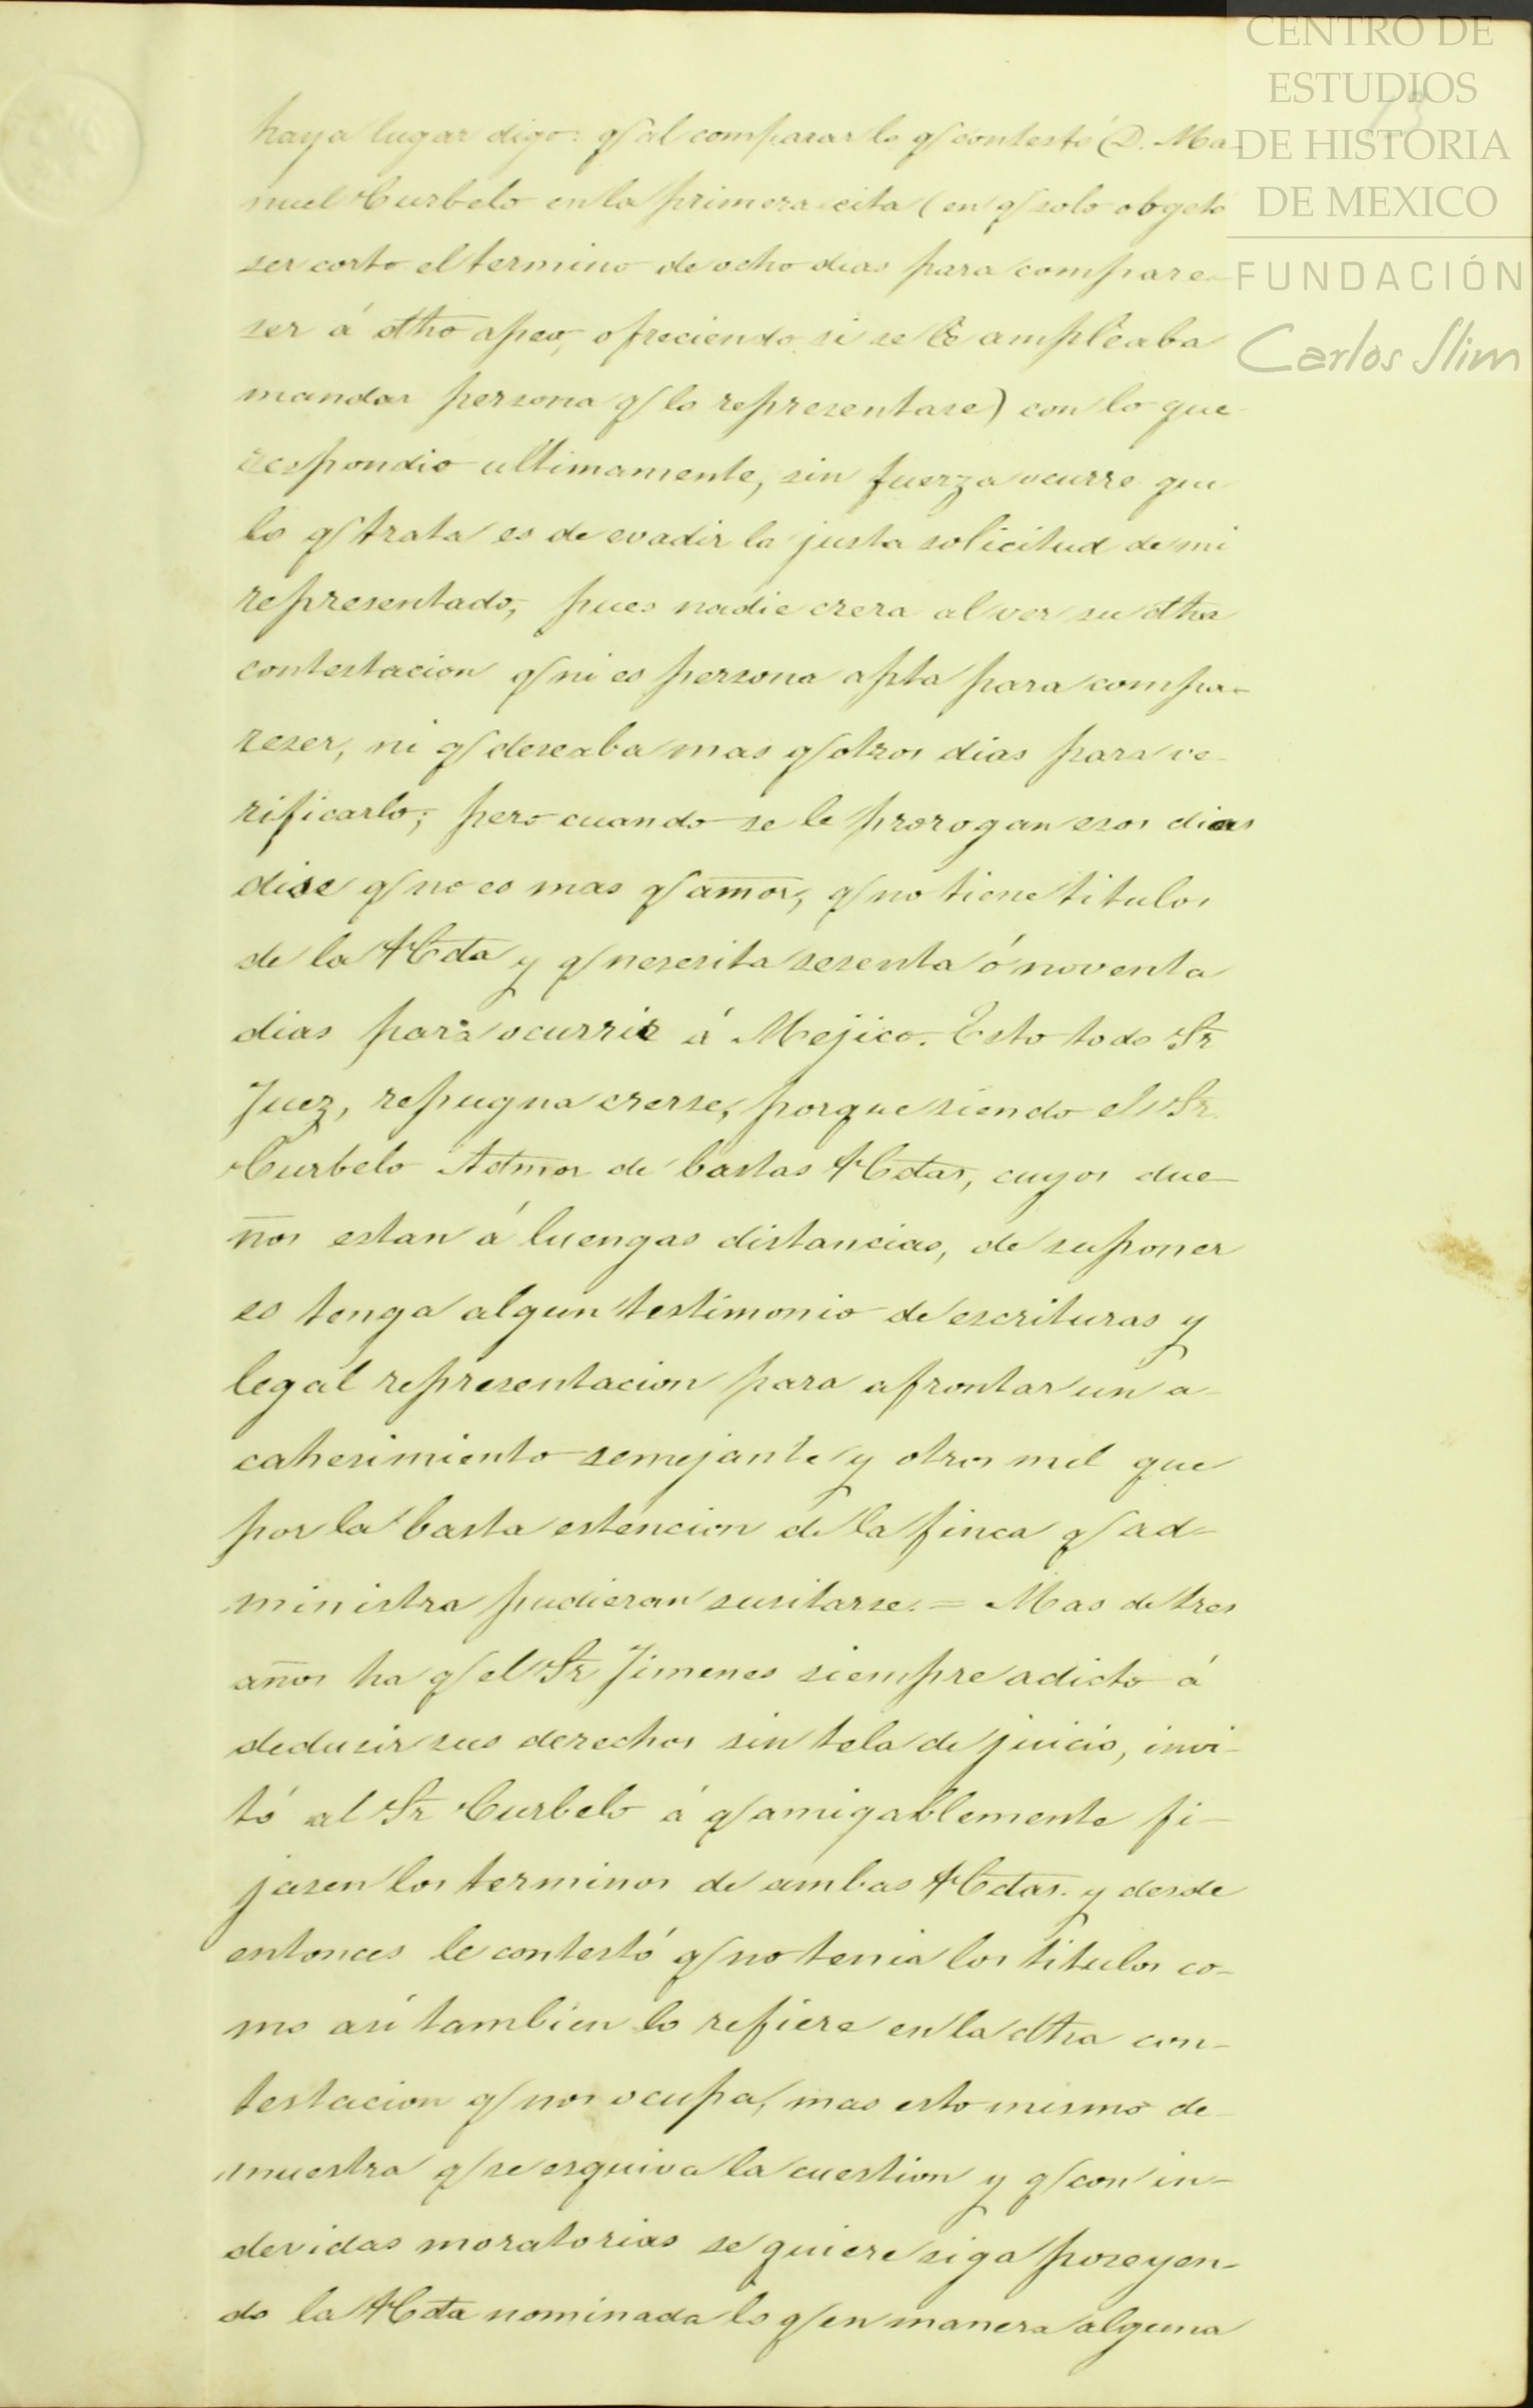 CENTRO DE
ESTUDIOS
DE HISTORIA
DE MEXICO
FUNDACIÓN
Carlos Slim
haya lugar digo: q/ al comparar lo q/ contestó D. Ma-
nuel Curbelo en la primera cita (en q/ solo obgetó
ser corto el termino de ocho dias para compare-
ser á dho apeo, ofreciendo si se le ampleaba
mandar persona q/ lo representase) con lo que
respondio ultimamente, sin fuerza ocurre que
lo q/ trata es de evadir la justa solicitud de mi
representado, pues nadie crera al ver su dha
contestacion q/ ni es persona apta para compa-
reser, ni q/ deseaba mas q/ otros dias para ve-
rificarlo; pero cuando se le prorogan esos dias
dise q/ no es mas q/ amor, q/ no tiene titulos
de la Hda y q/ nesesita sesenta ó noventa
dias para ocurrir á Mejico. Esto todo Sr
Juez, repugna crerse, porque siendo el Sr.
Curbelo Admor de bastas Hdas, cuyos due-
ños estan á luengas distancias, de suponer
es tenga algun testimonio de escrituras y
legal representacion para afrontar un a-
cahesimiento semejante y otros mil que
por la basta estencion de la finca q/ ad-
ministra pudieran susitarse. = Mas de tres
años ha q/ el Sr Jimenes siempre adicto á
dedusir sus derechos sin tela de juicio, invi-
tó al Sr Curbelo á q/ amigablemente fi-
jasen los terminos de ambas Hdas. y desde
entonces le contestó q/ no tenia los titulos co-
mo asi tambien lo refiere en la dha con-
testacion q/ nos ocupa, mas esto mismo de
muestra q/ se esquiva la cuestion y q/ con in-
devidas moratorias se quiere siga poseyen-
do la Hda nominada lo q/ en manera alguna